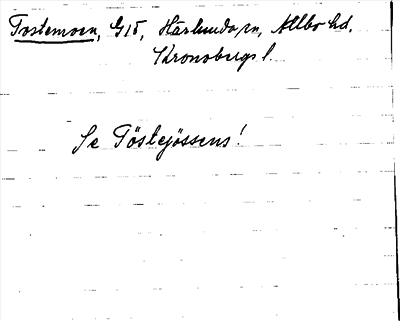 Tostemoen, G15, Härlunda sn, Allbo hd.
Kronobergs l.
Se Töstejössens!